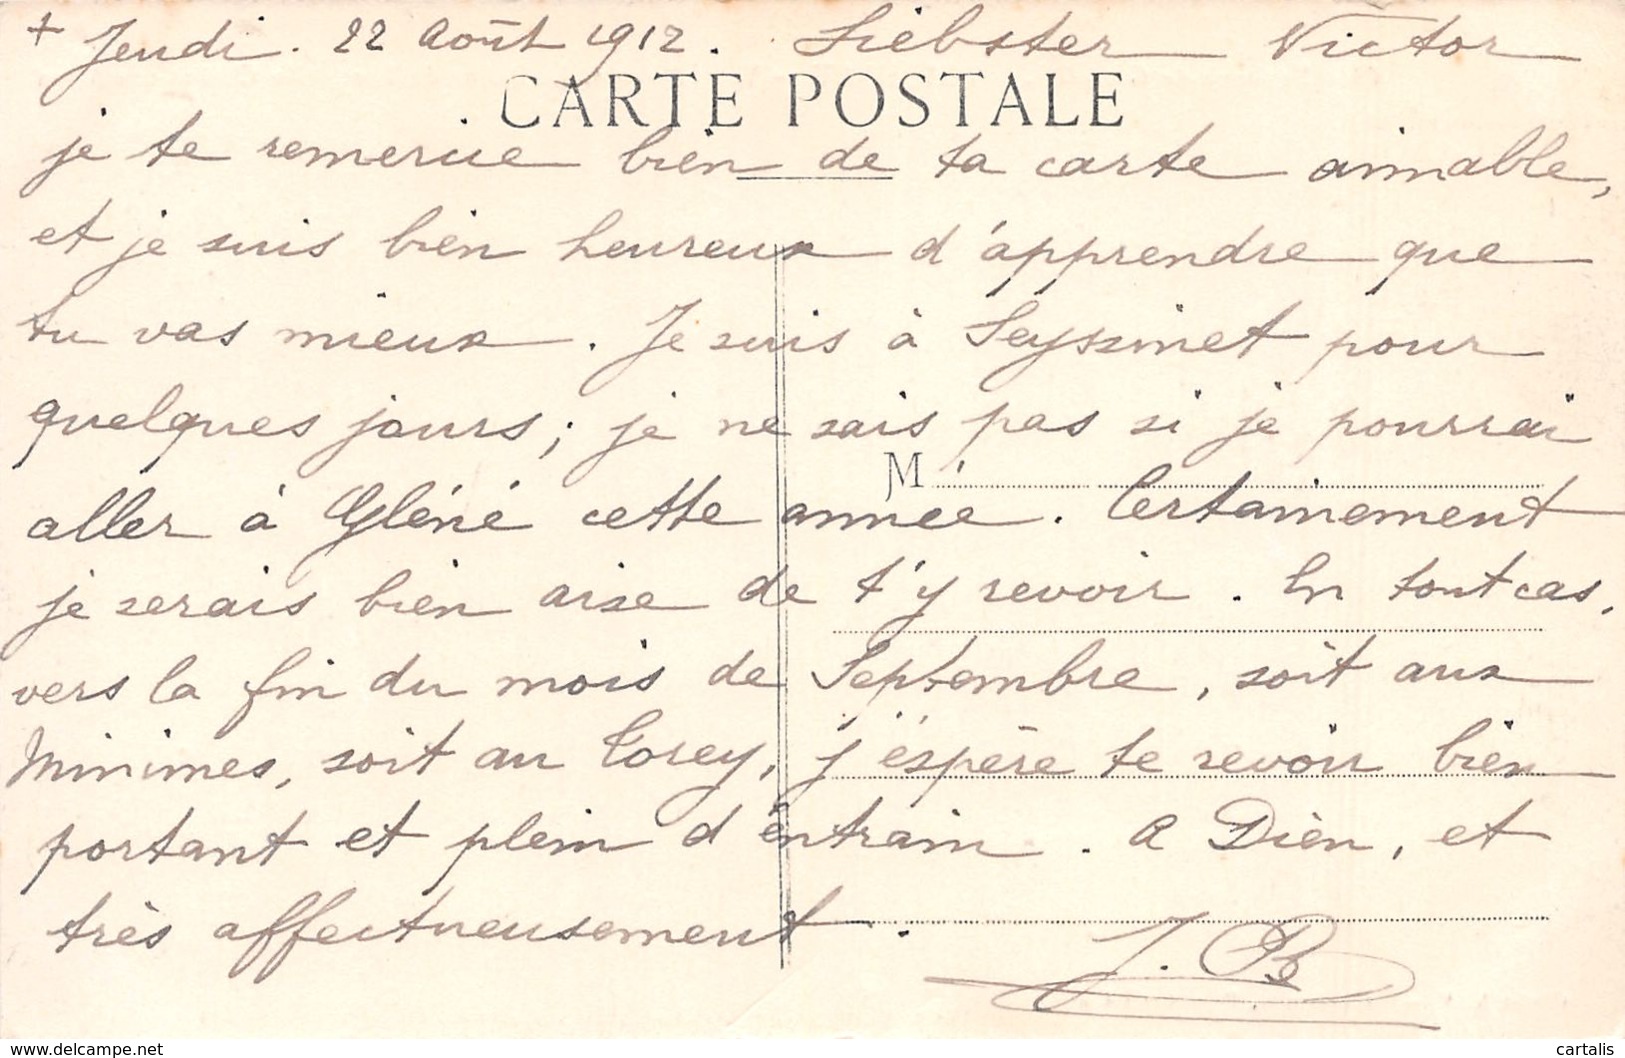 + Jeudi. 22 Août 1912. Liebster Victor
CARTE POSTALE
je te remercie bien de ta carte aimable,
et je suis bien heureux d'apprendre que
tu vas mieux. Je suis à Seyssinet pour
quelques jours; je ne sais pas si je pourrai
M
aller à Gléné cette année. Certainement
je serais bien aise de t'y revoir. En tout cas,
vers la fin du mois de Septembre, soit aux
Minimes, soit au Corey, j'espère te revoir bien
portant et plein d'entrain. A Dien, et
très affectueusement.
J. B
www.delcampe.net
cartalis